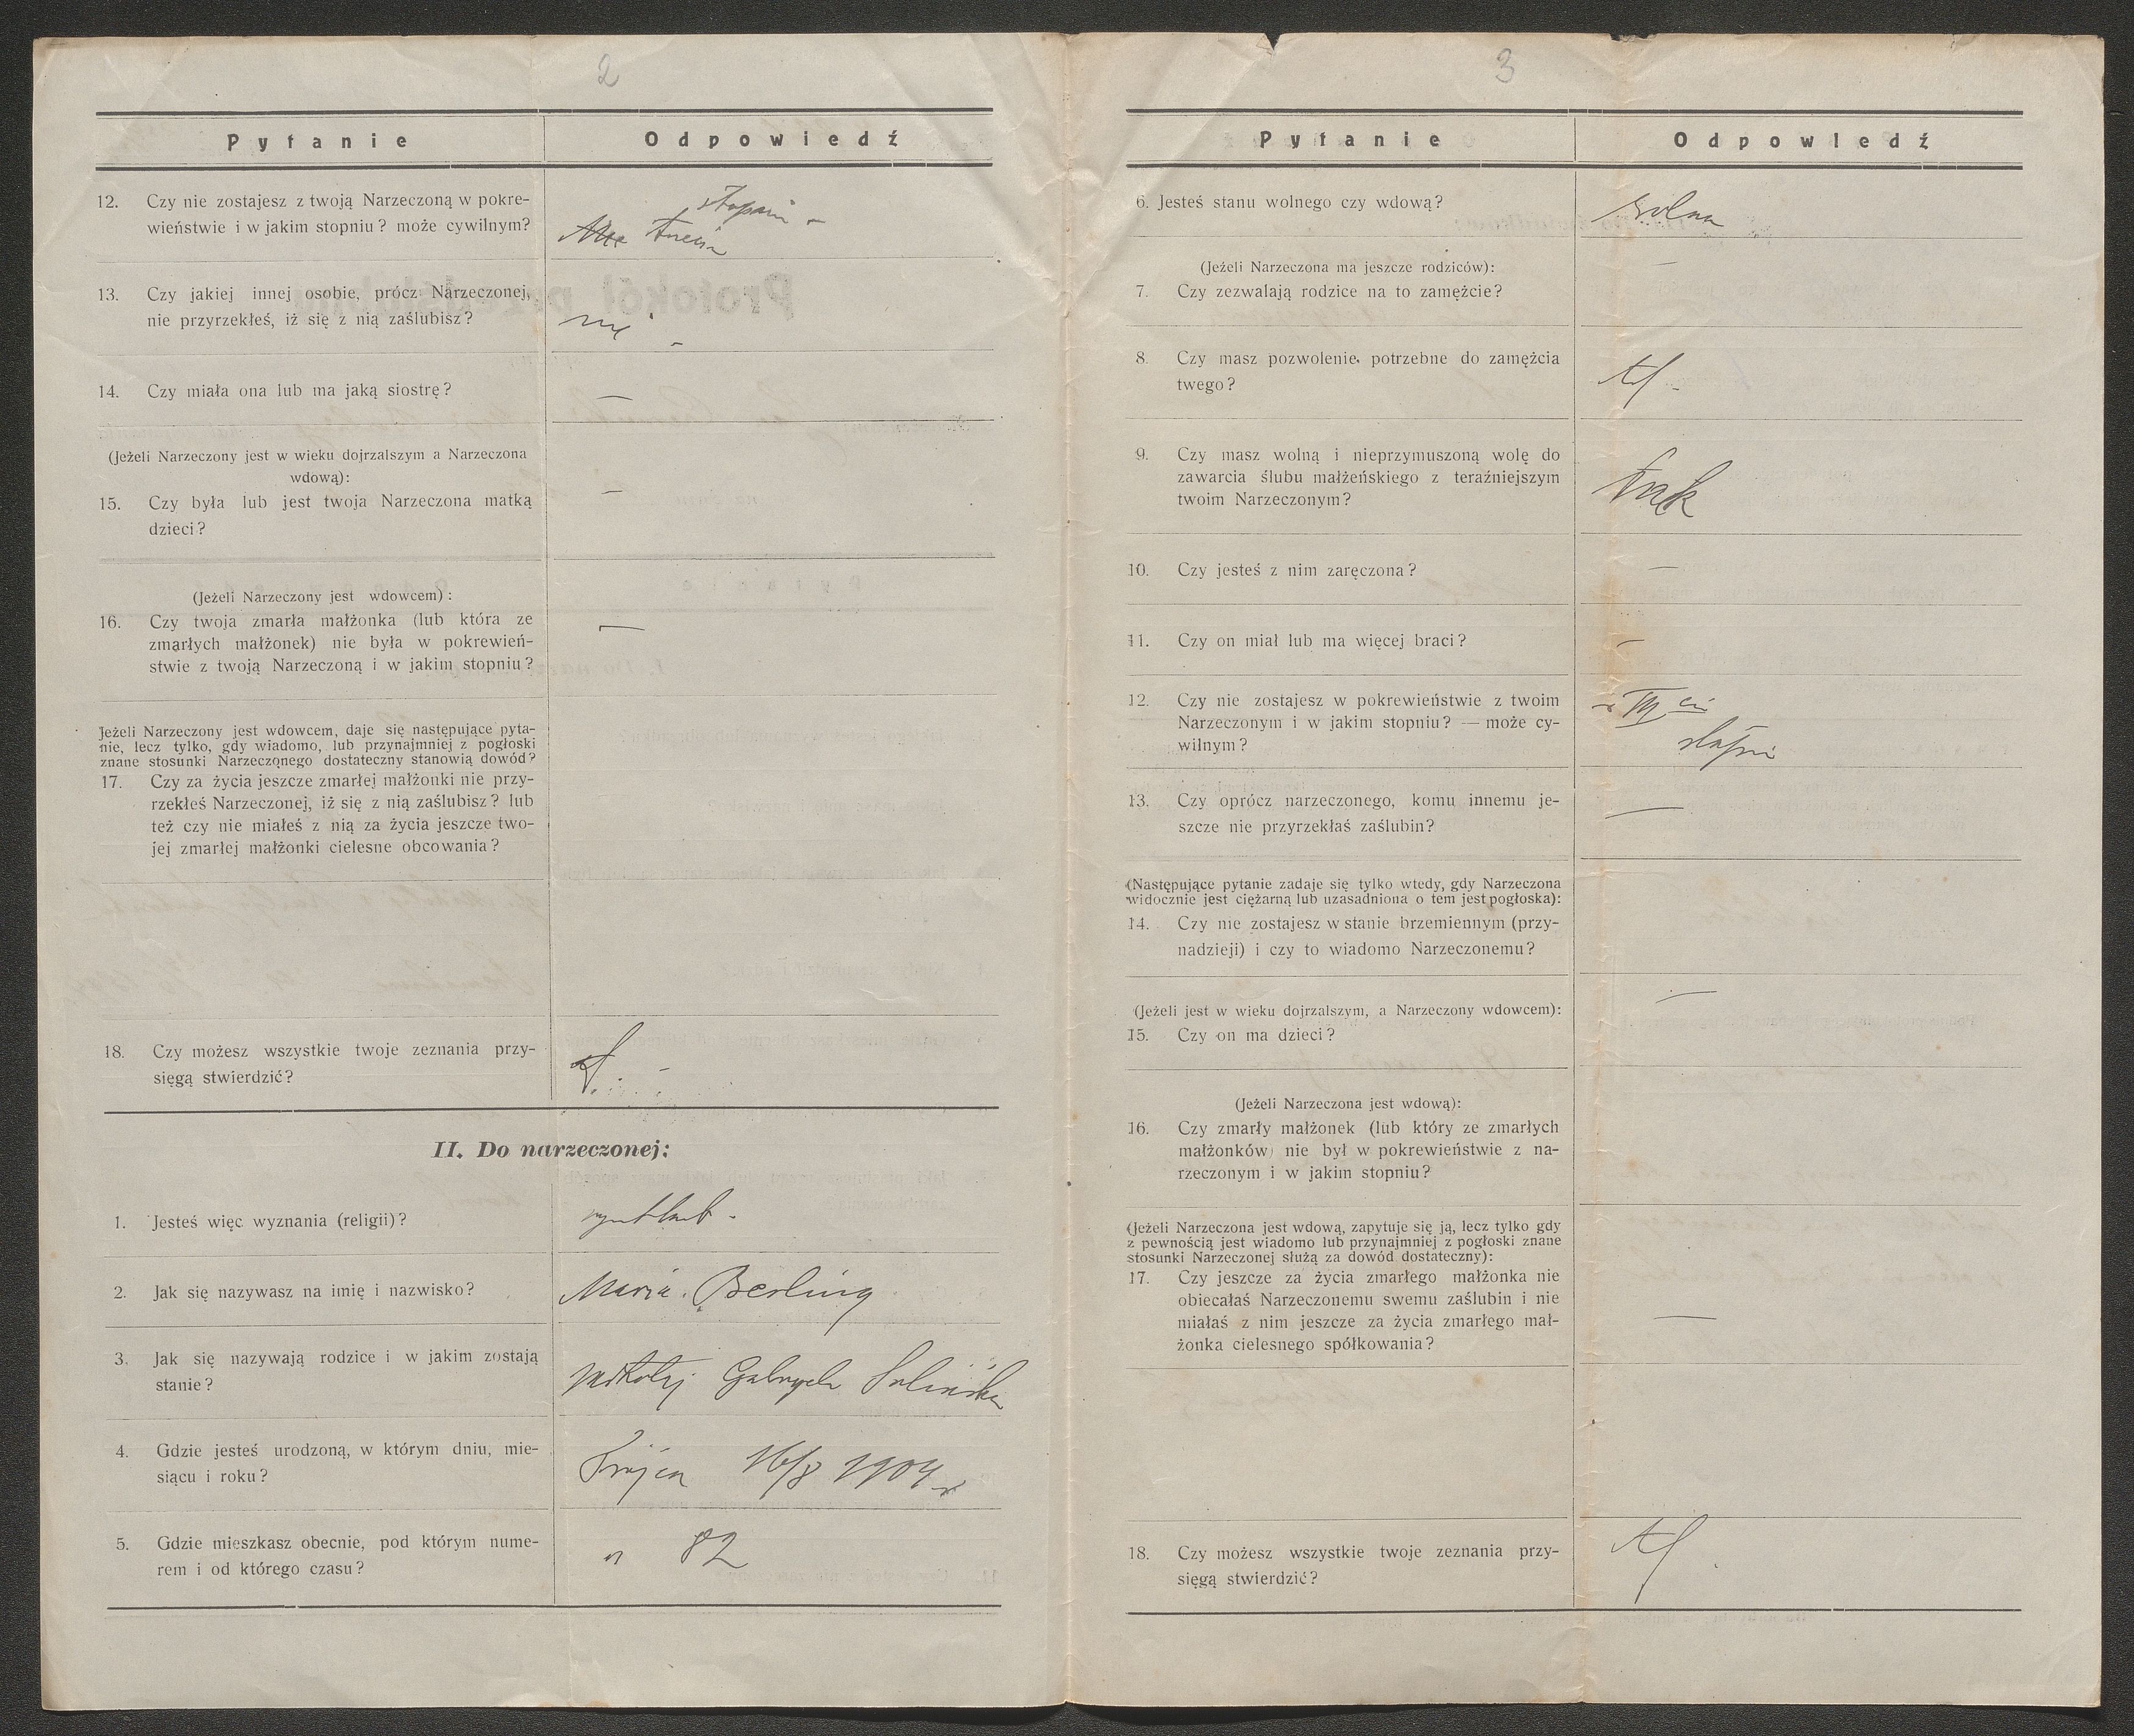 2
Pytanie
Odpowiedź
12. Czy nie zostajesz z twoją Narzeczoną w pokre-
wieństwie i w jakim stopniu? może cywilnym?
stopniu -
13. Czy jakiej innej osobie, prócz Narzeczonej,
nie przyrzekłeś, iż się z nią zaślubisz?
nie -
14. Czy miała ona lub ma jaką siostrę?
—
(Jeżeli Narzeczony jest w wieku dojrzalszym a Narzeczona
wdową):
15. Czy była lub jest twoja Narzeczona matką
dzieci?
—
(Jeżeli Narzeczony jest wdowcem):
16. Czy twoja zmarła małżonka (lub która ze
zmarłych małżonek) nie była w pokrewień-
stwie z twoją Narzeczoną i w jakim stopniu?
—
Jeżeli Narzeczony jest wdowcem, daje się następujące pyta-
nie, lecz tylko, gdy wiadomo, lub przynajmniej z pogłoski
znane stosunki Narzeczonego dostateczny stanowią dowód?
17. Czy za życia jeszcze zmarłej małżonki nie przy-
rzekłeś Narzeczonej, iż się z nią zaślubisz? lub
też czy nie miałeś z nią za życia jeszcze two-
jej zmarłej małżonki cielesne obcowania?
18. Czy możesz wszystkie twoje zeznania przy-
sięgą stwierdzić?
II. Do narzeczonej:
1. Jesteś więc wyznania (religii)?
2. Jak się nazywasz na imię i nazwisko?
Maria Berling
3. Jak się nazywają rodzice i w jakim zostają
stanie?
Mikołaj Gabryela Solińska
4. Gdzie jesteś urodzoną, w którym dniu, mie-
siącu i roku?
Trójca 16/8 1904 r
5. Gdzie mieszkasz obecnie, pod którym nume-
rem i od którego czasu?
" 82
3
Pytanie
Odpowiedź
6. Jesteś stanu wolnego czy wdową?
wolna
(Jeżeli Narzeczona ma jeszcze rodziców):
7. Czy zezwalają rodzice na to zamężcie?
—
8. Czy masz pozwolenie potrzebne do zamężcia
twego?
9. Czy masz wolną i nieprzymuszoną wolę do
zawarcia ślubu małżeńskiego z teraźniejszym
twoim Narzeczonym?
tak
10. Czy jesteś z nim zaręczona?
—
11. Czy on miał lub ma więcej braci?
—
12. Czy nie zostajesz w pokrewieństwie z twoim
Narzeczonym i w jakim stopniu? — może cy-
wilnym?
13. Czy oprócz narzeczonego, komu innemu je-
szcze nie przyrzekłaś zaślubin?
—
(Następujące pytanie zadaje się tylko wtedy, gdy Narzeczona
widocznie jest ciężarną lub uzasadniona o tem jest pogłoska):
14. Czy nie zostajesz w stanie brzemiennym (przy-
nadzieji) i czy to wiadomo Narzeczonemu?
(Jeżeli jest w wieku dojrzalszym, a Narzeczony wdowcem):
15. Czy on ma dzieci?
—
(Jeżeli Narzeczona jest wdową):
16. Czy zmarły małżonek (lub który ze zmarłych
małżonków) nie był w pokrewieństwie z na-
rzeczonym i w jakim stopniu?
(Jeżeli Narzeczona jest wdową, zapytuje się ją, lecz tylko gdy
z pewnością jest wiadomo lub przynajmniej z pogłoski znane
stosunki Narzeczonej służą za dowód dostateczny):
17. Czy jeszcze za życia zmarłego małżonka nie
obiecałaś Narzeczonemu swemu zaślubin i nie
miałaś z nim jeszcze za życia zmarłego mał-
żonka cielesnego spółkowania?
—
18. Czy możesz wszystkie twoje zeznania przy-
sięgą stwierdzić?